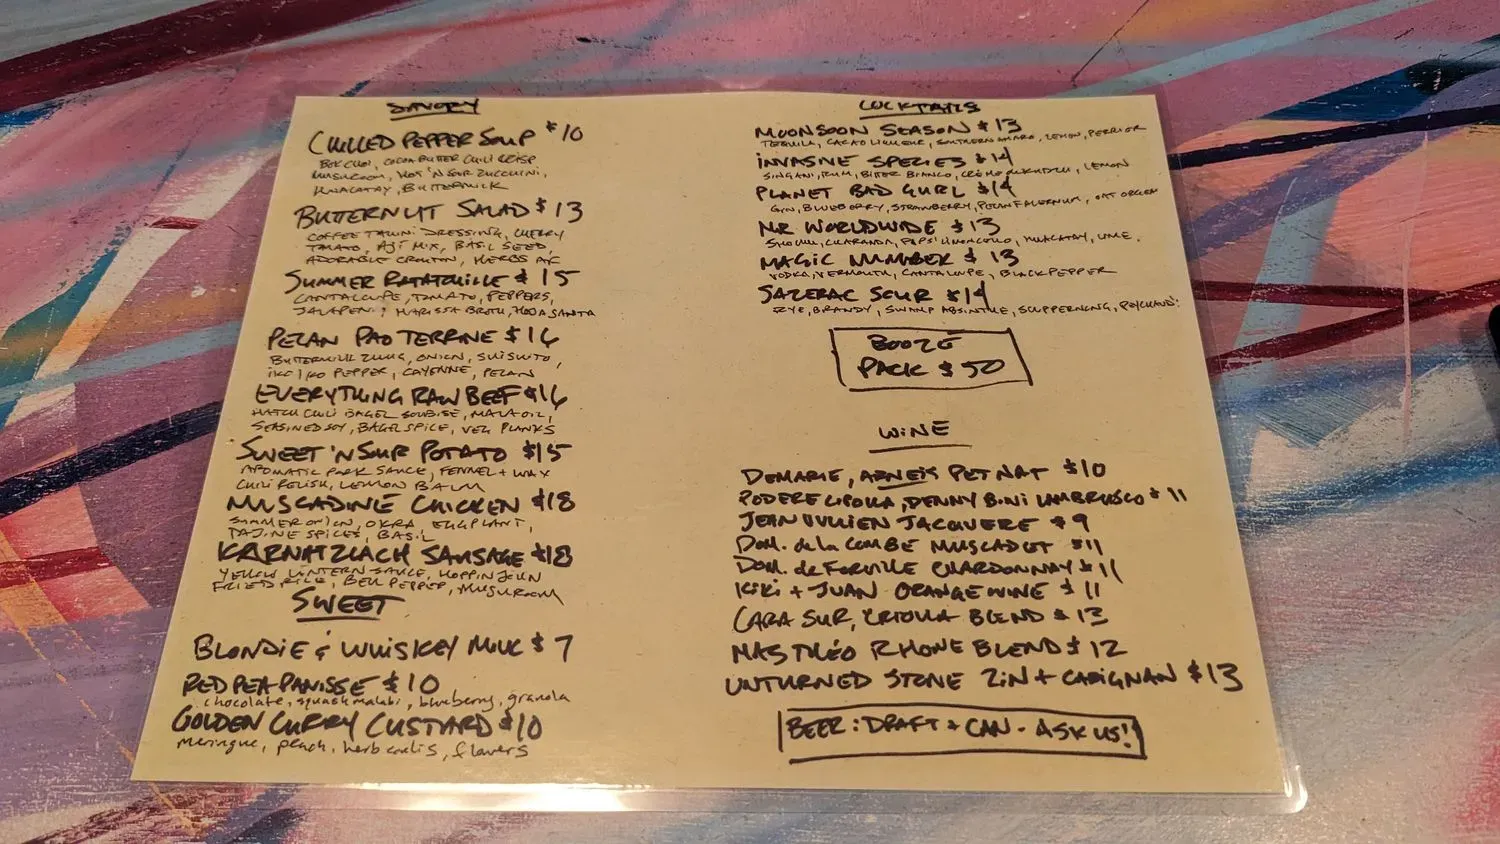 SAVORY
CHILLED PEPPER SOUP $10
BOK CHOI, COCOA BUTTER CHILI CRISP
MUSHROOM, HOT 'N SUR ZUCCHINI,
HUACATAY, BUTTERMILK
BUTTERNUT SALAD $13
COFFEE TAHINI DRESSING, CHERRY
TOMATO, AJÍ MIX, BASIL SEED,
ADORABLE CROUTON, HERBS
SUMMER RATATOUILLE $15
CANTALOUPE, TOMATO, PEPPERS,
JALAPEÑO, HARISSA BROTH, HOJA SANTA
PECAN PAO TERRINE $16
BUTTERMILK ZUKE, ONION, SHISHITO,
IKO IKO PEPPER, CAYENNE, PECAN
EVERYTHING RAW BEEF $16
HATCH CHILI BAGEL SOUBISE, MALA OIL,
SEASONED SOY, BAGEL SPICE, VEG PLANKS
SWEET 'N SUR POTATO $15
AROMATIC PORK SAUCE, FENNEL + WAX
CHILI RELISH, LEMON BALM
MUSCADINE CHICKEN $18
SUMMER ONION, OKRA, EGGPLANT,
TAJINE SPICES, BASIL
KARNATZLACH SAUSAGE $18
YELLOW LANTERN SAUCE, HOPPIN JOHN
FRIED RICE, BELL PEPPER, MUSHROOM
SWEET
BLONDIE & WHISKEY MILK $7
RED PEA PANISSE $10
chocolate, squash malabi, blueberry, granola
GOLDEN CURRY CUSTARD $10
meringue, peach, herb, flowers
COCKTAILS
MOONSOON SEASON $13
TEQUILA, CACAO LIQUEUR, SOUTHERN AMARO, LEMON, PERRIER
INVASIVE SPECIES $14
SINGANI, RUM, BITTER BIANCO, CRÈME DE KUDZU, LEMON
PLANET BAD GURL $14
GIN, BLUEBERRY, STRAWBERRY, PECAN FALERNUM, OAT ORGEAT
MR WORLDWIDE $13
SHOCHU, CHARANDA, POPS' LIMONCELLO, HUACATAY, LIME.
MAGIC NUMBER $13
VODKA, VERMOUTH, CANTALOUPE, BLACK PEPPER
SAZERAC SOUR $14
RYE, BRANDY, SWAMP ABSINTHE, SCUPPERNONG, PEYCHAUD'S
BOOZE
PACK $50
WINE
DEMARIE, ARNEIS PET NAT $10
PODERE CIPOLLA, DENNY BINI LAMBRUSCO $11
JEAN JULIEN JACQUERE $9
DOM. de la COMBE MUSCADET $11
DOM. de FORVILLE CHARDONNAY $11
KIKI + JUAN ORANGE WINE $11
CARA SUR, CRIOLLA BLEND $13
MAS THÉO RHONE BLEND $12
UNTURNED STONE ZIN + CARIGNAN $13
BEER: DRAFT + CAN - ASK US!